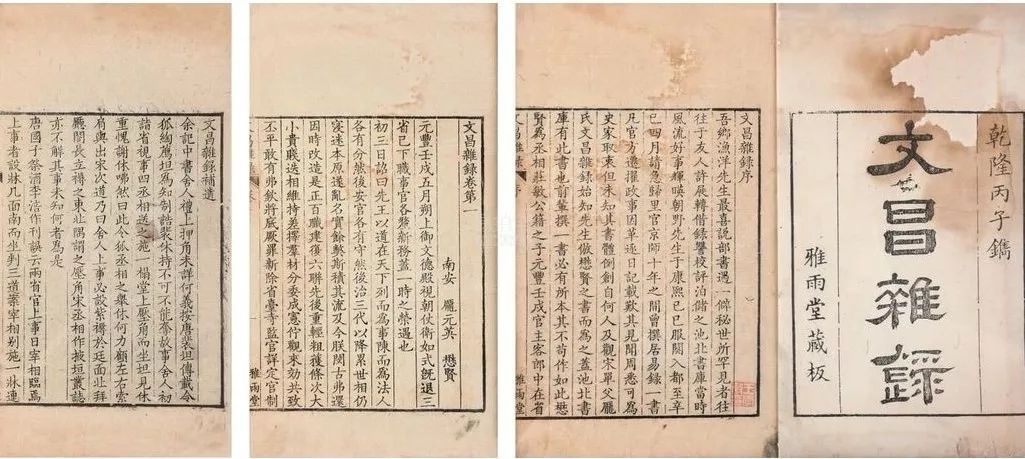 乾隆丙子鐫
文昌雜錄
雅雨堂藏板
文昌雜錄序
吾鄉漁洋先生最喜說部書遇一僻秘世所罕見者往
往于友人許展轉借録讐校評泊儲之池北書庫當時
風流好事輝暎朝野先生于康熙已巳服闋入都至辛
巳四月請急歸里官京師十年之間曾撰居易録一書
凡官方遷擢政事因革逐日記載歎其見聞周悉可爲
史家取衷但未知其書體例創自何人及觀宋單父龐
氏文昌雜録始知先生倣懋賢之書而爲之蓋池北書
庫有此書也前輩撰一書必有所本其不苟作如此懋
賢為丞相莊敏公籍之子元豐壬戌官主客郎中在省
文昌雜錄 序
雅雨堂
文昌雜錄卷第一
南安 龐元英 懋賢
元豐壬戌五月朔上御文德殿視朝仗衛如式既退三
省已下職事官各釐新務蓋一時之榮遇也
初三日詔曰先王以道在天下列而為事陳而為法人
各有分然後安官各有守然後治三代以降累世相仍
寖迷本原遂亂名實餘弊斯積其流及今朕閔古弗還
因時改造是正百職建復六聯先後重輕粗獲條次大
小貴賤迭相維持差擇羣材分委成憲佇觀來効共致
丕平敢有弗欽將底厥罪新除省臺寺監官詳定官制
雅雨堂
文昌雜錄補遺
余記中書舍人禮上押角未詳何義按唐裴坦傳載令
狐綯薦坦爲知制誥裴休持不可不能奪故事舍人初
詣省視事四丞相送之施一榻堂上壓角而坐坦見休
重愧謝休咈然曰此令狐丞相之舉休何力顧左右索
肩輿出宋次道乃曰舍人上事必設紫褥於廷面北拜
廳閤長立褥之東北隅謂之壓角宋丞相作掖垣叢誌
亦不解其事未知何者爲是
唐國子祭酒李涪作刊誤云兩省官上事日宰相臨焉
上事者設牀几面南而坐判三道案宰相別施一牀連